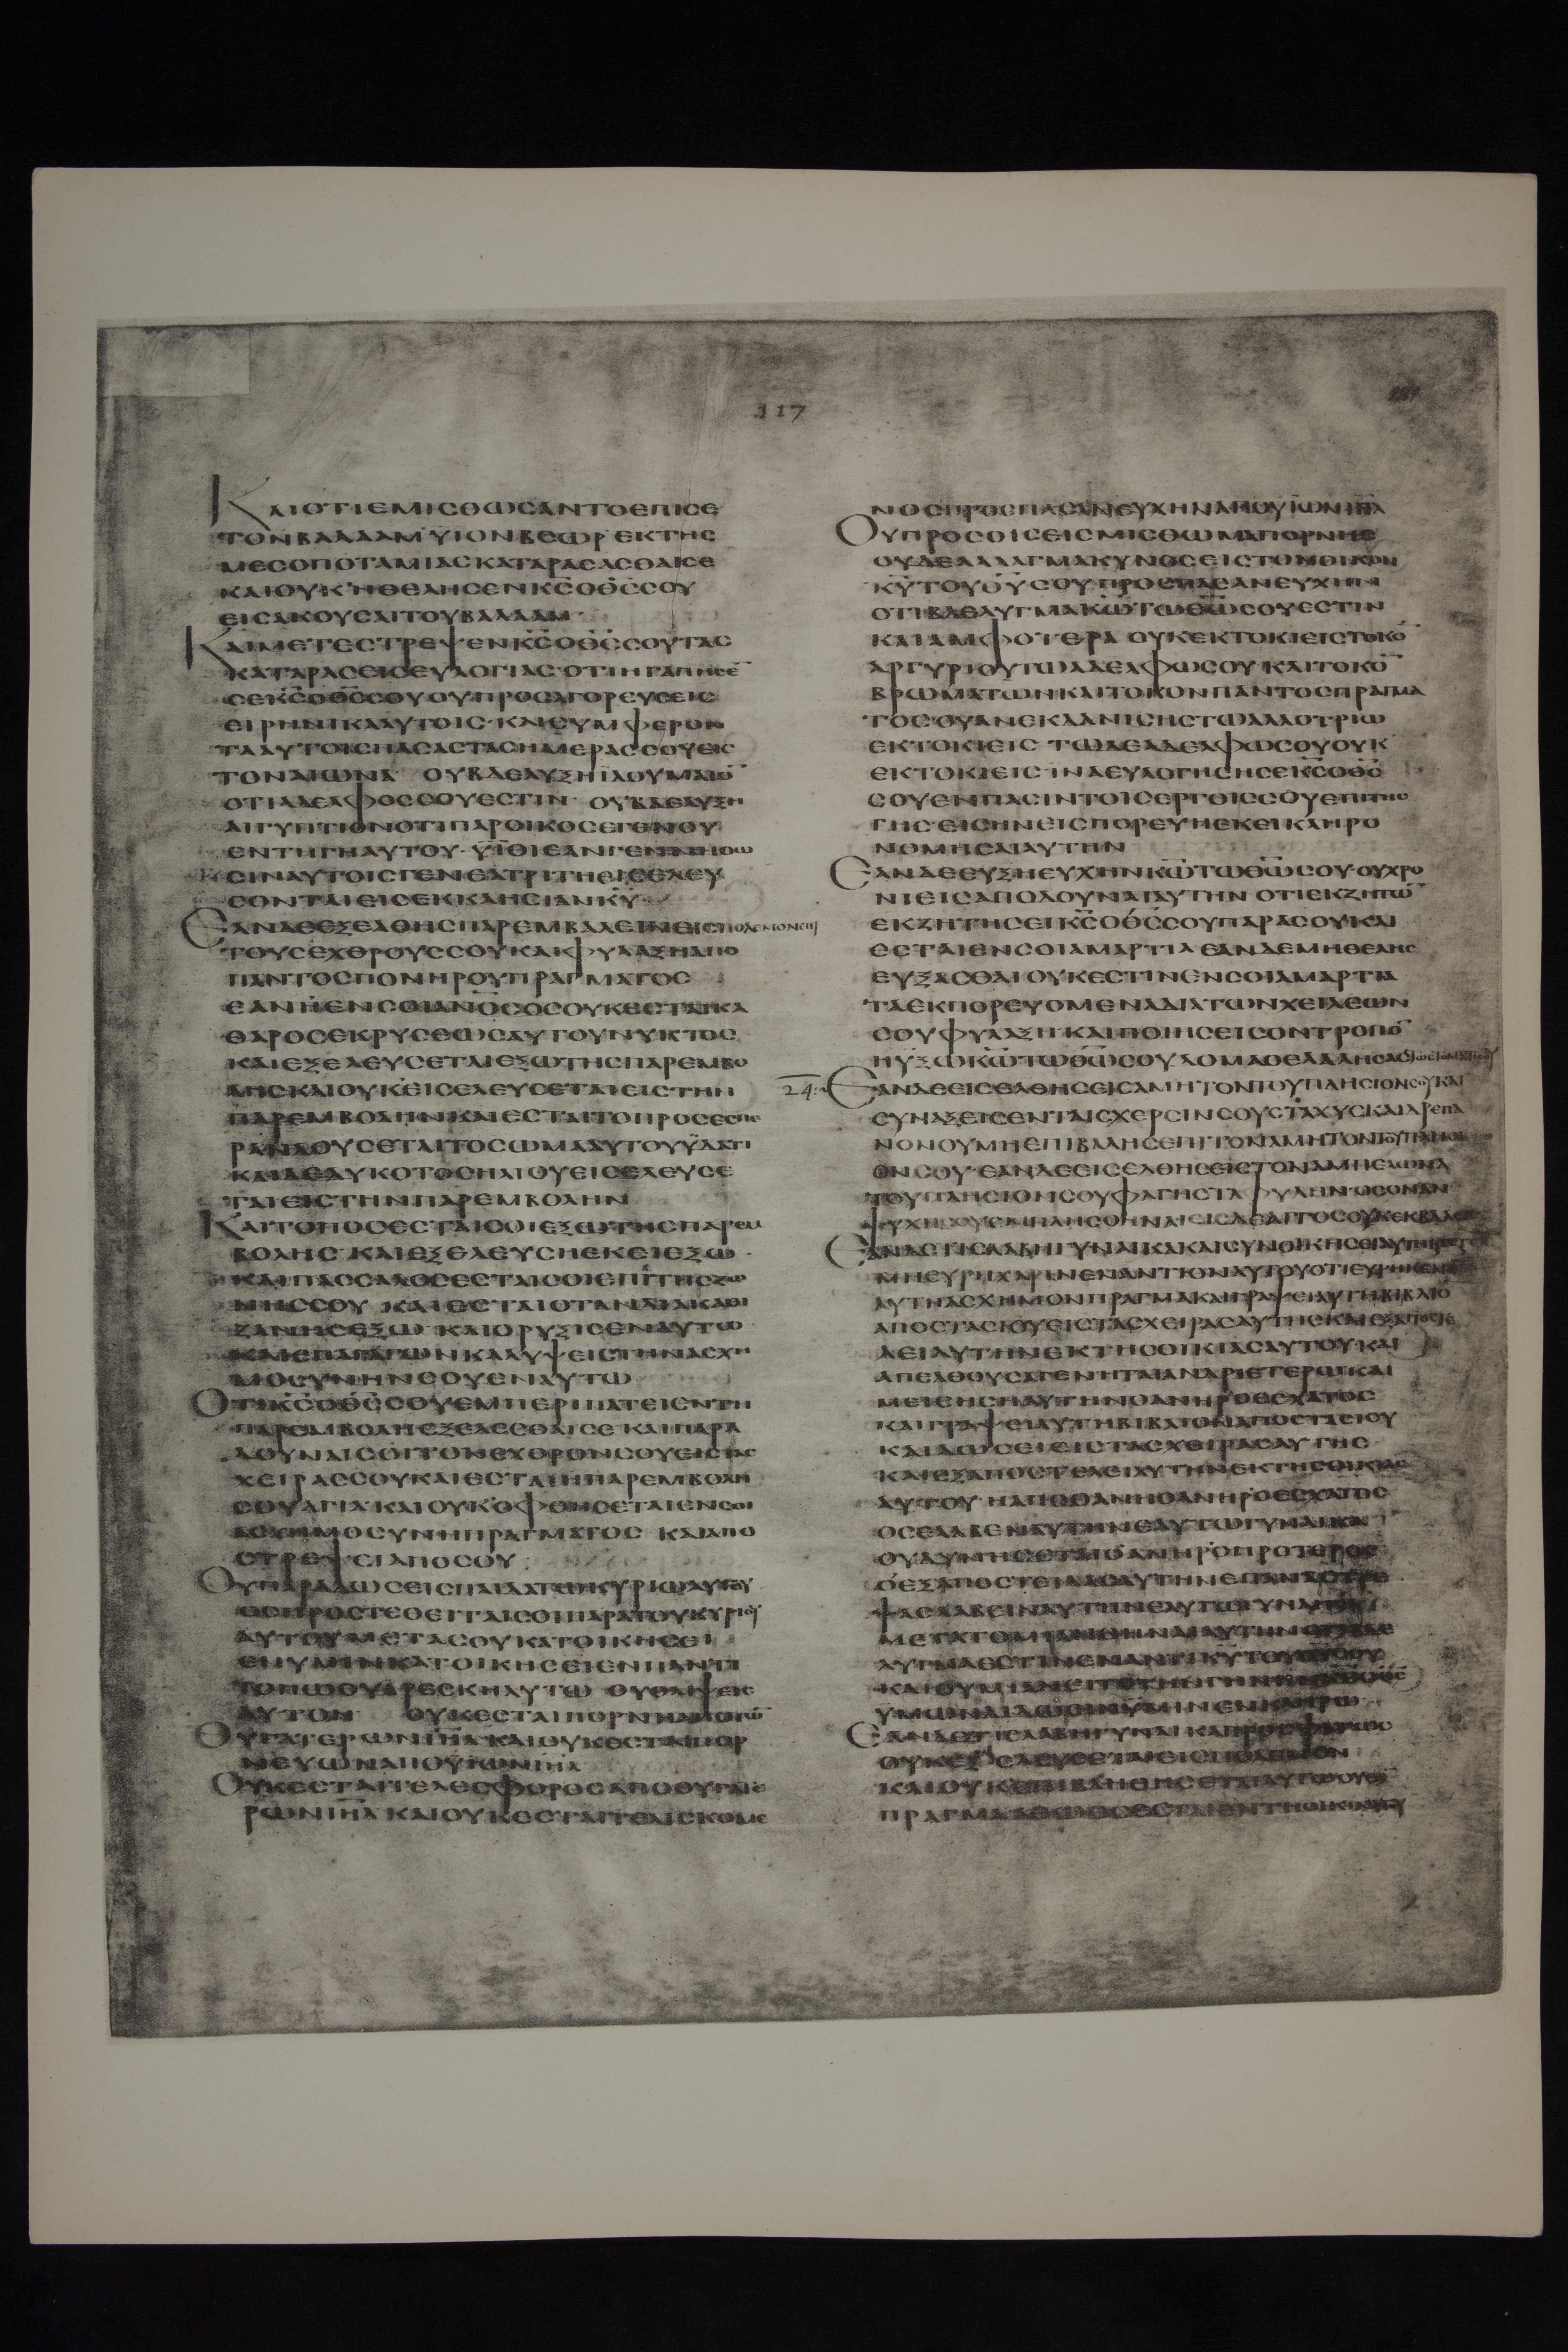 117
ΚΑΙΟΤΙΕΜΙϹΘΩϹΑΝΤΟΕΠΙϹΕ
ΤΟΝΒΑΛΑΑΜΫΙΟΝΒΕΩΡ ΕΚΤΗϹ
ΜΕϹΟΠΟΤΑΜΙΑϹΚΑΤΑΡΑϹΑϹΘΑΙϹΕ
ΚΑΙΟΥΚΗΘΕΛΗϹΕΝΚ̅Ϲ̅ΟΘ̅Ϲ̅ϹΟΥ
ΕΙϹΑΚΟΥϹΑΙΤΟΥΒΑΛΑΑΜ
ΚΑΙΜΕΤΕϹΤΡΕΨΕΝΚ̅Ϲ̅ΟΘ̅Ϲ̅ϹΟΥΤΑϹ
ΚΑΤΑΡΑϹΕΙϹΕΥΛΟΓΙΑϹ·ΟΤΙΗΓΑΠΗϹΕ̅
ϹΕΚ̅Ϲ̅ΟΘ̅Ϲ̅ϹΟΥ ΟΥΠΡΟϹΑΓΟΡΕΥϹΕΙϹ
ΕΙΡΗΝΙΚΑΑΥΤΟΙϹ·ΚΑΙϹΥΜΦΕΡΟΝ
ΤΑΑΥΤΟΙϹΠΑϹΑϹΤΑϹΗΜΕΡΑϹϹΟΥΕΙϹ
ΤΟΝΑΙΩΝΑ ΟΥΒΔΕΛΥΞΗΪΔΟΥΜΑΙΟ̅
ΟΤΙΑΔΕΛΦΟϹϹΟΥΕϹΤΙΝ ΟΥΒΔΕΛΥΞΗ
ΑΙΓΥΠΤΙΟΝΟΤΙΠΑΡΟΙΚΟϹΕΓΕΝΟΥ
ΕΝΤΗΓΗΑΥΤΟΥ·ΫΙΟΙΕΑΝΓΕΝΝΗΘΩ
ϹΙΝΑΥΤΟΙϹΓΕΝΕΑΤΡΙΤΗΕΙϹΕΛΕΥ
ϹΟΝΤΑΙΕΙϹΕΚΚΛΗϹΙΑΝΚ̅Υ̅
ΕΑΝΔΕΕΞΕΛΘΗϹΠΑΡΕΜΒΑΛΕΙΝΕΙϹΠΟΛΕΜΟΝΕΠΙ
ΤΟΥϹΕΧΘΡΟΥϹϹΟΥΚΑΙΦΥΛΑΞΗΑΠΟ
ΠΑΝΤΟϹΠΟΝΗΡΟΥΠΡΑΓΜΑΤΟϹ
ΕΑΝΗΕΝϹΟΙΑΝΟϹΟϹΟΥΚΕϹΤΑΙΚΑ
ΘΑΡΟϹΕΚΡΥϹΕΩϹΑΥΤΟΥΝΥΚΤΟϹ
ΚΑΙΕΞΕΛΕΥϹΕΤΑΙΕΞΩΤΗϹΠΑΡΕΜΒΟ
ΛΗϹΚΑΙΟΥΚΕΙϹΕΛΕΥϹΕΤΑΙΕΙϹΤΗΝ
ΠΑΡΕΜΒΟΛΗΝΚΑΙΕϹΤΑΙΤΟΠΡΟϹΕϹΠΕ
ΡΑΝΛΟΥϹΕΤΑΙΤΟϹΩΜΑΑΥΤΟΥΫΔΑΤΙ
ΚΑΙΔΕΔΥΚΟΤΟϹΗΛΙΟΥΕΙϹΕΛΕΥϹΕ
ΤΑΙΕΙϹΤΗΝΠΑΡΕΜΒΟΛΗΝ
ΚΑΙΤΟΠΟϹΕϹΤΑΙϹΟΙΕΞΩΤΗϹΠΑΡΕΜ
ΒΟΛΗϹ ΚΑΙΕΞΕΛΕΥϹΗΕΚΕΙΕΞΩ
ΚΑΙΠΑϹϹΑΛΟϹΕϹΤΑΙϹΟΙΕΠΙΤΗϹΖΩ
ΝΗϹϹΟΥ ΚΑΙΕϹΤΑΙΟΤΑΝΔΙΑΚΑΘΙ
ΖΑΝΗϹΕΞΩ ΚΑΙΟΡΥΞΙϹΕΝΑΥΤΩ
ΚΑΙΕΠΑΓΑΓΩΝΚΑΛΥΨΕΙϹΤΗΝΑϹΧΗ
ΜΟϹΥΝΗΝϹΟΥΕΝΑΥΤΩ
ΟΤΙΚ̅Ϲ̅ΟΘ̅Ϲ̅ϹΟΥΕΜΠΕΡΙΠΑΤΕΙΕΝΤΗ
ΠΑΡΕΜΒΟΛΗΕΞΕΛΕϹΘΑΙϹΕ ΚΑΙΠΑΡΑ
ΔΟΥΝΑΙϹΟΙΤΟΝΕΧΘΡΟΝϹΟΥΕΙϹΤΑϹ
ΧΕΙΡΑϹϹΟΥΚΑΙΕϹΤΑΙΗΠΑΡΕΜΒΟΛΗ
ϹΟΥΑΓΙΑΚΑΙΟΥΚΟΦΘΗϹΕΤΑΙΕΝϹΟΙ
ΑϹΧΗΜΟϹΥΝΗΠΡΑΓΜΑΤΟϹ ΚΑΙΑΠΟ
ϹΤΡΕΨΕΙΑΠΟϹΟΥ
ΟΥΠΑΡΑΔΩϹΕΙϹΠΑΙΔΑΤΩΚΥΡΙΩΑΥΤΟΥ
ΟϹΠΡΟϹΤΕΘΕΙΤΑΙϹΟΙΠΑΡΑΤΟΥΚΥΡΙΟΥ
ΑΥΤΟΥΜΕΤΑϹΟΥΚΑΤΟΙΚΗϹΕΙ
ΕΝΥΜΙΝΚΑΤΟΙΚΗϹΕΙΕΝΠΑΝΤΙ
ΤΟΠΩΟΥΑΡΕϹΚΗΑΥΤΩ ΟΥΘΛΙΨΕΙϹ
ΑΥΤΟΝ ΟΥΚΕϹΤΑΙΠΟΡΝΗΑΠΟΤΩ̅
ΘΥΓΑΤΕΡΩΝΙ̅Η̅Λ̅ΚΑΙΟΥΚΕϹΤΑΙΠΟΡ
ΝΕΥΩΝΑΠΟΫΙΩΝΙ̅Η̅Λ̅
ΟΥΚΕϹΤΑΙΤΕΛΕϹΦΟΡΟϹΑΠΟΘΥΓΑΤΕ
ΡΩΝΙ̅Η̅Λ̅ΚΑΙΟΥΚΕϹΤΑΙΤΕΛΙϹΚΟΜΕ
ΝΟϹΠΡΟϹΠΑϹΑΝΕΥΧΗΝΑΠΟΥΙΩΝΙ̅Η̅Λ̅
ΟΥΠΡΟϹΟΙϹΕΙϹΜΙϹΘΩΜΑΠΟΡΝΗϹ
ΟΥΔΕΑΛΛΑΓΜΑΚΥΝΟϹΕΙϹΤΟΝΟΙΚΟΝ
Κ̅Υ̅ΤΟΥΘ̅Υ̅ϹΟΥΠΡΟϹΠΑϹΑΝΕΥΧΗΝ
ΟΤΙΒΔΕΛΥΓΜΑΚ̅Ω̅ΤΩΘ̅Ω̅ϹΟΥΕϹΤΙΝ
ΚΑΙΑΜΦΟΤΕΡΑ ΟΥΚΕΚΤΟΚΙΕΙϹΤΟΚΟ̅
ΑΡΓΥΡΙΟΥΤΩΑΔΕΛΦΩϹΟΥ·ΚΑΙΤΟΚΟ̅
ΒΡΩΜΑΤΩΝΚΑΙΤΟΚΟΝΠΑΝΤΟϹΠΡΑΓΜΑ
ΤΟϹΟΥΑΝΕΚΔΑΝΙϹΗϹΤΩΑΛΛΟΤΡΙΩ
ΕΚΤΟΚΙΕΙϹ ΤΩΔΕΑΔΕΛΦΩϹΟΥΟΥΚ
ΕΚΤΟΚΙΕΙϹ·ΙΝΑΕΥΛΟΓΗϹΗϹΕΚ̅Ϲ̅ΟΘ̅Ϲ̅
ϹΟΥΕΝΠΑϹΙΝΤΟΙϹΕΡΓΟΙϹϹΟΥΕΠΙΤΗϹ
ΓΗϹ·ΕΙϹΗΝΕΙϹΠΟΡΕΥΗΕΚΕΙΚΛΗΡΟ
ΝΟΜΗϹΑΙΑΥΤΗΝ
ΕΑΝΔΕΕΥΞΗΕΥΧΗΝΚ̅Ω̅ΤΩΘ̅Ω̅ϹΟΥ·ΟΥΧΡΟ
ΝΙΕΙϹΑΠΟΔΟΥΝΑΙΑΥΤΗΝ ΟΤΙΕΚΖΗΤΩ̅
ΕΚΖΗΤΗϹΕΙΚ̅Ϲ̅ΟΘ̅Ϲ̅ϹΟΥΠΑΡΑϹΟΥΚΑΙ
ΕϹΤΑΙΕΝϹΟΙΑΜΑΡΤΙΑ ΕΑΝΔΕΜΗΘΕΛΗϹ
ΕΥΞΑϹΘΑΙΟΥΚΕϹΤΙΝΕΝϹΟΙΑΜΑΡΤΙΑ
ΤΑΕΚΠΟΡΕΥΟΜΕΝΑΔΙΑΤΩΝΧΕΙΛΕΩΝ
ϹΟΥΦΥΛΑΞΗ·ΚΑΙΠΟΙΗϹΕΙϹΟΝΤΡΟΠΟ̅
ΗΥΞΩΚ̅Ω̅ΤΩΘ̅Ω̅ϹΟΥΔΟΜΑΟΕΛΑΛΗϹΑϹΤΩϹΤΟΜΑΤΙϹΟΥ
24
ΕΑΝΔΕΕΙϹΕΛΘΗϹΕΙϹΑΜΗΤΟΝΤΟΥΠΛΗϹΙΟΝϹΟΥΚΑΙ
ϹΥΝΑΞΕΙϹΕΝΤΑΙϹΧΕΡϹΙΝϹΟΥϹΤΑΧΥϹΚΑΙΔΡΕΠΑ
ΝΟΝΟΥΜΗΕΠΙΒΑΛΗϹΕΠΙΤΟΝΑΜΗΤΟΝΤΟΥΠΛΗϹΙ
ΟΝϹΟΥ·ΕΑΝΔΕΕΙϹΕΛΘΗϹΕΙϹΤΟΝΑΜΠΕΛΩΝΑ
ΤΟΥΠΛΗϹΙΟΝϹΟΥΦΑΓΗϹΤΑΦΥΛΗΝ·ΟϹΟΝΑΝ
ΨΥΧΗϹΟΥΕΜΠΛΗϹΘΗΝΑΙΕΙϹΔΕΑΓΓΟϹΟΥΚΕΚΒΑΛΕΙϹ
ΕΑΝΔΕΤΙϹΛΑΒΗΓΥΝΑΙΚΑΚΑΙϹΥΝΟΙΚΗϹΕΙ
ΜΗΕΥΡΗΧΑΡΙΝΕΝΑΝΤΙΟΝΑΥΤΟΥΟΤΙΕΥΡΗΚΕΝΕΝ
ΑΥΤΗΑϹΧΗΜΟΝΠΡΑΓΜΑΚΑΙΓΡΑΨΕΙΑΥΤΗΒΙΒΛΙΟ̅
ΑΠΟϹΤΑϹΙΟΥΕΙϹΤΑϹΧΕΙΡΑϹΑΥΤΗϹΚΑΙΕΞΑΠΟϹΤΕ
ΛΕΙΑΥΤΗΝΕΚΤΗϹΟΙΚΙΑϹΑΥΤΟΥΚΑΙ
ΑΠΕΛΘΟΥϹΑΓΕΝΗΤΑΙΑΝΔΡΙΕΤΕΡΩ·ΚΑΙ
ΜΕΙϹΗϹΗΑΥΤΗΝΟΑΝΗΡΟΕϹΧΑΤΟϹ
ΚΑΙΓΡΑΨΕΙΑΥΤΗΒΙΒΛΙΟΝΑΠΟϹΤΑϹΙΟΥ
ΚΑΙΔΩϹΕΙΕΙϹΤΑϹΧΕΙΡΑϹΑΥΤΗϹ
ΚΑΙΕΞΑΠΟϹΤΕΛΕΙΑΥΤΗΝΕΚΤΗϹΟΙΚΙΑϹ
ΑΥΤΟΥ ΗΑΠΟΘΑΝΗΟΑΝΗΡΟΕϹΧΑΤΟϹ
ΟϹΕΛΑΒΕΝΑΥΤΗΝΕΑΥΤΩΓΥΝΑΙΚΑ
ΟΥΔΥΝΗϹΕΤΑΙΟΑΝΗΡΟΠΡΟΤΕΡΟϹ
ΟΕΞΑΠΟϹΤΕΙΛΑϹΑΥΤΗΝΕΠΑΝΑϹΤΡΕ
ΨΑϹΛΑΒΕΙΝΑΥΤΗΝΕΑΥΤΩΓΥΝΑΙΚΑ
ΜΕΤΑΤΟΜΙΑΝΘΗΝΑΙΑΥΤΗΝΟΤΙΒΔΕ
ΛΥΓΜΑΕϹΤΙΝΕΝΑΝΤΙΚ̅Υ̅ΤΟΥΘ̅Υ̅ϹΟΥ
ΚΑΙΟΥΜΙΑΝΕΙΤΕΤΗΝΓΗΝ
ΥΜΩΝΔΙΔΩϹΙΝΥΜΙΝΕΝΚΛΗΡΩ
ΕΑΝΔΕΤΙϹΛΑΒΗΓΥΝΑΙΚΑΠΡΟϹΦΑΤΩϹ
ΟΥΚΕΞΕΛΕΥϹΕΤΑΙΕΙϹΠΟΛΕΜΟΝ
ΚΑΙΟΥΚΕΠΙΒΛΗΘΗϹΕΤΑΙΑΥΤΩΟΥΔΕ
ΠΡΑΓΜΑΑΘΩΟϹΕϹΤΑΙΕΝΤΗΟΙΚΙΑΑΥΤΟΥ